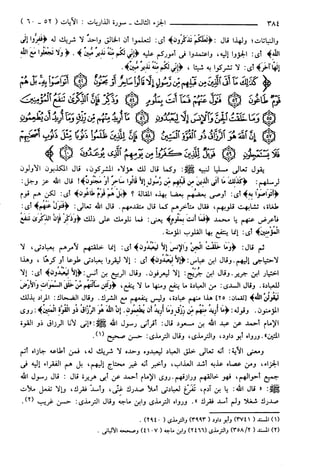 ٣٨٤ الجزء الثالث - سورة الذاريات : الآيات ( ٥٢ - ٦٠ )
والنباتات؛ ولهذا قال : ﴿لعلكم تذكرون﴾ أي: لتعلموا أن الخالق واحد لا شريك له ﴿ففروا إلى
الله﴾ أي: الجؤوا إليه، واعتمدوا في أموركم عليه ﴿إني لكم منه نذير مبين﴾ . ﴿ولا تجعلوا مع الله
إلها آخر﴾ أي: لا تشركوا به شيئاً ، ﴿إني لكم منه نذير مبين﴾ .
﴿كذلك ما أتى الذين من قبلهم من رسول إلا قالوا ساحر أو مجنون أتواصوا به بل هم
قوم طاغون فتول عنهم فما أنت بملوم وذكر فإن الذكرى تنفع المؤمنين
وما خلقت الجن والإنس إلا ليعبدون ما أريد منهم من رزق وما أريد أن يطعمون
إن الله هو الرزاق ذو القوة المتين فإن للذين ظلموا ذنوباً مثل ذنوب أصحابهم
فلا يستعجلون فويل للذين كفروا من يومهم الذي يوعدون﴾
يقول تعالى مسلياً لنبيه ﷺ : وكما قال لك هؤلاء المشركون، قال المكذبون الأولون
لرسلهم: ﴿كذلك ما أتى الذين من قبلهم من رسول إلا قالوا ساحر أو مجنون﴾! قال الله عز وجل:
﴿أتواصوا به﴾ أي: أوصى بعضهم بعضاً بهذه المقالة ؟ ﴿بل هم قوم طاغون﴾ أي: لكن هم قوم
طغاة، تشابهت قلوبهم، فقال متأخرهم كما قال متقدمهم. قال الله تعالى: ﴿فتول عنهم﴾ أي:
فأعرض عنهم يا محمد ﴿فما أنت بملوم﴾ يعني: فما نلومك على ذلك ﴿وذكر فإن الذكرى تنفع
المؤمنين﴾ أي: إنما ينتفع بها القلوب المؤمنة.
ثم قال: ﴿وما خلقت الجن والإنس إلا ليعبدون﴾ أي: إنما خلقتهم لآمرهم بعبادتي، لا
لاحتياجي إليهم. وقال ابن عباس: ﴿إلا ليعبدون﴾ أي: إلا ليقروا بعبادتي طوعاً أو كرهاً ، وهذا
اختيار ابن جرير. وقال ابن جريج: إلا ليعرفون. وقال الربيع بن أنس: ﴿إلا ليعبدون﴾ أي: إلا
للعبادة. وقال السدي: من العبادة ما ينفع ومنها ما لا ينفع، ﴿ولئن سألتهم من خلق السموات والأرض
ليقولن الله﴾ (لقمان: ٢٥) هذا منهم عبادة، وليس ينفعهم مع الشرك. وقال الضحاك: المراد بذلك
المؤمنون. وقوله: ﴿ما أريد منهم من رزق وما أريد أن يطعمون. إن الله هو الرزاق ذو القوة المتين﴾: روى
الإمام أحمد عن عبد الله بن مسعود قال: أقرأني رسول الله ﷺ: «إني لأنا الرزاق ذو القوة
المتين». ورواه أبو داود، والترمذي، وقال الترمذي: حسن صحيح (١).
ومعنى الآية: أنه تعالى خلق العباد ليعبدوه وحده لا شريك له، فمن أطاعه جازاه أتم
الجزاء، ومن عصاه عذبه أشد العذاب، وأخبر أنه غير محتاج إليهم، بل هم الفقراء إليه في
جميع أحوالهم، فهو خالقهم ورازقهم. روى الإمام أحمد عن أبي هريرة قال : قال رسول الله
ﷺ: « قال الله: يا بن آدم، تفرغ لعبادتي أملأ صدرك غنى، وأسد فقرك، وإلا تفعل ملأت
صدرك شغلاً ولم أسد فقرك ». ورواه الترمذي وابن ماجه وقال الترمذي: حسن غريب (٢).
(١) المسند (٣٧٤١) وأبو داود (٣٩٩٣) والترمذي ( ٢٩٤٠ ) .
(٢) المسند (٣٥٨/٢) والترمذي (٢٤٦٦) وابن ماجه (٤١٠٧) وصححه الألباني .